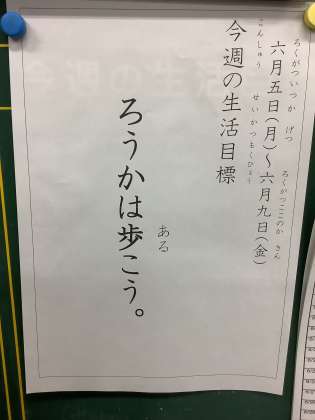 六月五日(月)～六月九日(金)
ろくがついつか げつ ろくがつここのか きん
今週の生活目標
こんしゅう せいかつもくひょう
ろうかは歩こう。
ある